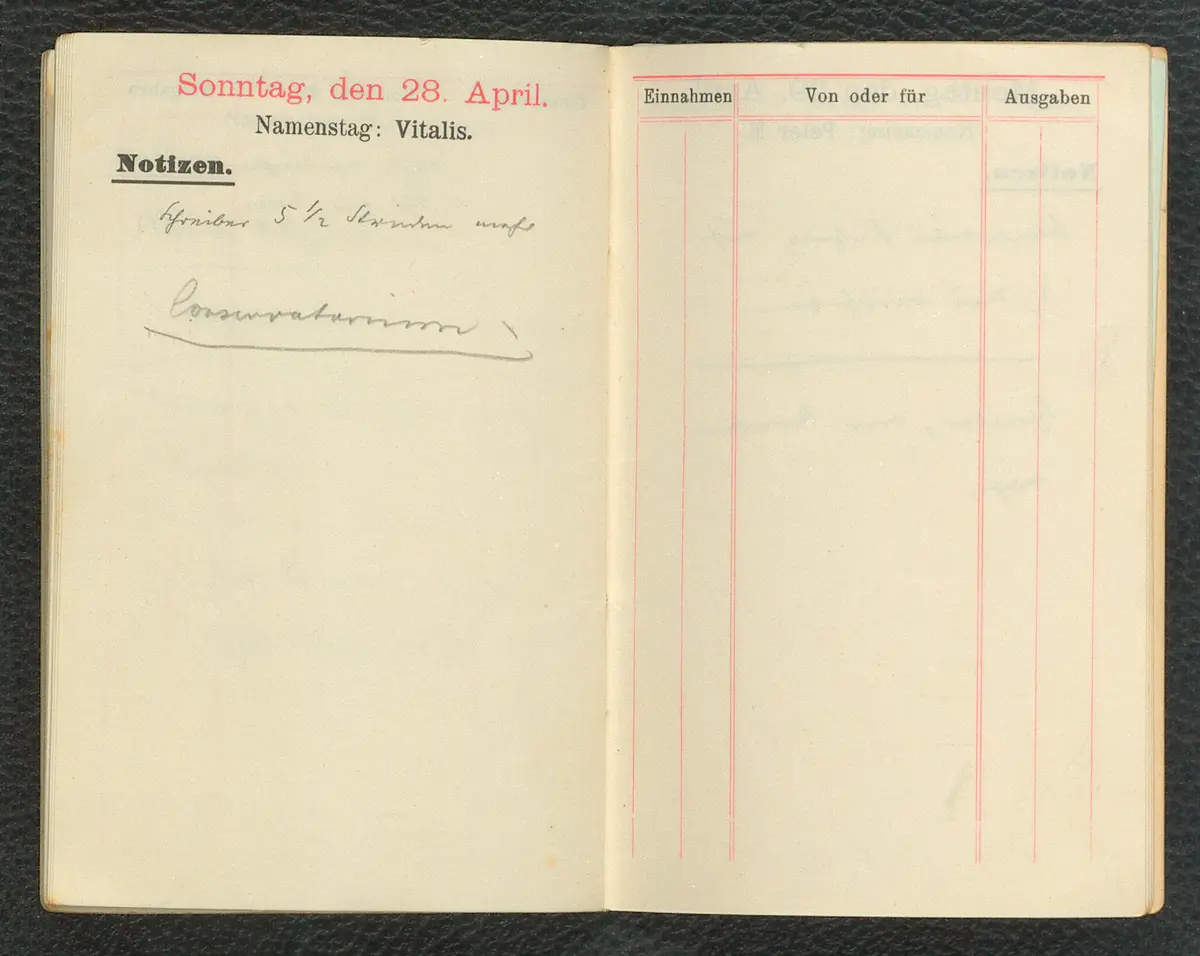 Sonntag, den 28. April.
Namenstag: Vitalis.
Notizen.
Schreiber 5 1/2 Stunden
Conservatorium
Einnahmen Von oder für Ausgaben